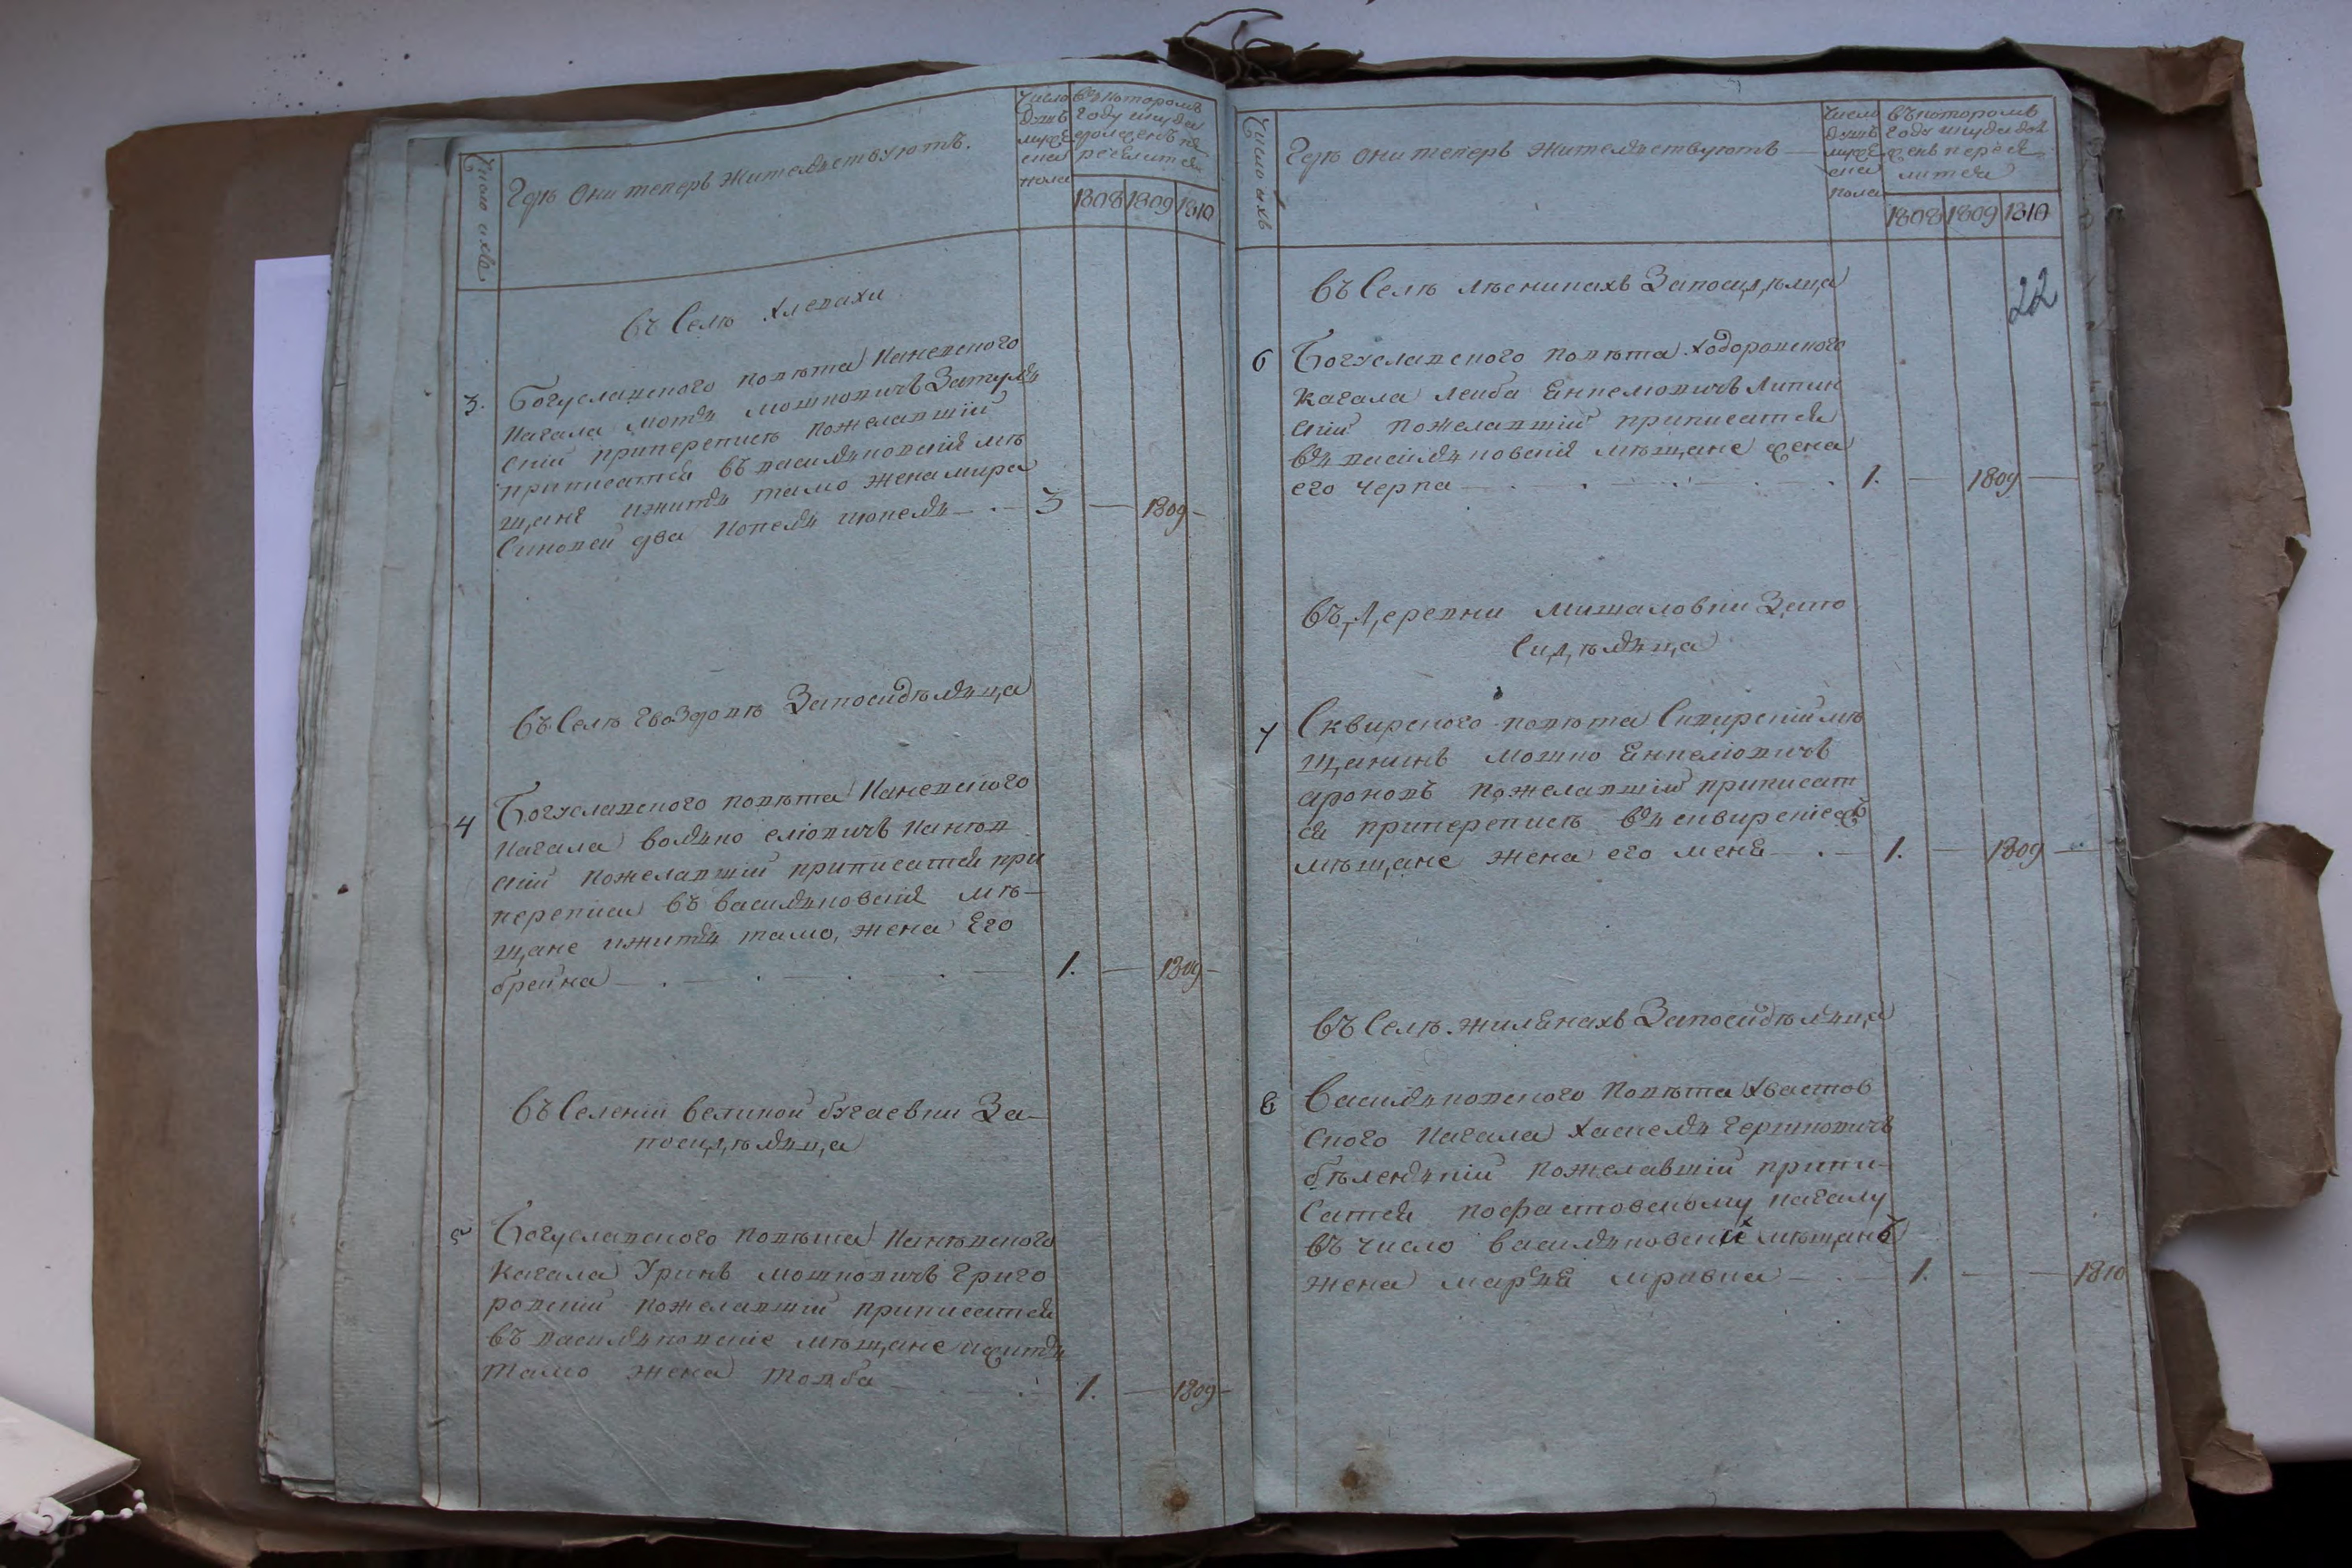 Число ихъ
Гдѣ они теперь жительствуютъ.
Число
душъ
муже
ска
пола
въ которомъ
году и куда
долженъ пе
реселится
1808 1809 1810
въ Селѣ Хлепахи
3. Богуславского повѣта Каневского
Кагала Мотя Мошковичъ Затуля
скій приперепись пожелавшій
приписатся въ васильковскія мѣ
щане ижить тамо жена мира
Синовей два Копель июпель — 3 — 1809 —
въ Селѣ Гвоздовѣ Запосидѣльца
4 Богуславского повѣта Каневского
Кагала Волько еліовичъ Канюв
скій пожелавшій приписатся при
переписи въ васильковскія мѣ
щане ижить тамо, жена Его
брейна — 1. — 1809 —
въ Селеніи великой бугаевки За
посидѣльца
5 Богуславского повѣта Канѣвского
Кагала Уринъ мошковичъ Григо
ровскій пожелавшій приписатся
въ васильковскіе мѣщане ижить
тамо жена товба — 1. — 1809 —
Число ихъ
Гдѣ они теперь жительствуютъ
Число
душъ
муже
ска
пола
въ которомъ
году и куда дол
женъ пересе
литса
1808 1809 1810
22
въ Селѣ лѣсникахъ Запосидѣлца
6 Богуславского повѣта Ходоровского
Кагала Лейба Енкелювичъ Липин
скій пожелавшій приписатся
въ васильковскія мѣщане жена
его черна — 1. — 1809 —
въ Деревни Мишаловки Запо
Сидѣльца
7 Сквирского повѣта Сквирскій мѣ
щанинъ мошко Енкеліовичъ
ароновъ пожелавшій приписат
ся приперепись въ сквирскіе жъ
мѣщане жена его меня — 1. — 1809 —
въ Селѣ жилянахъ Запосидѣльца
8 Васильковского Повѣта Хвастов
ского Кагала Хаскель Гершковичъ
бѣленькій пожелавшій припи
сатся пофастовскому кагалу
въ число васильковских мѣщанъ
жена марья — 1. — — 1810